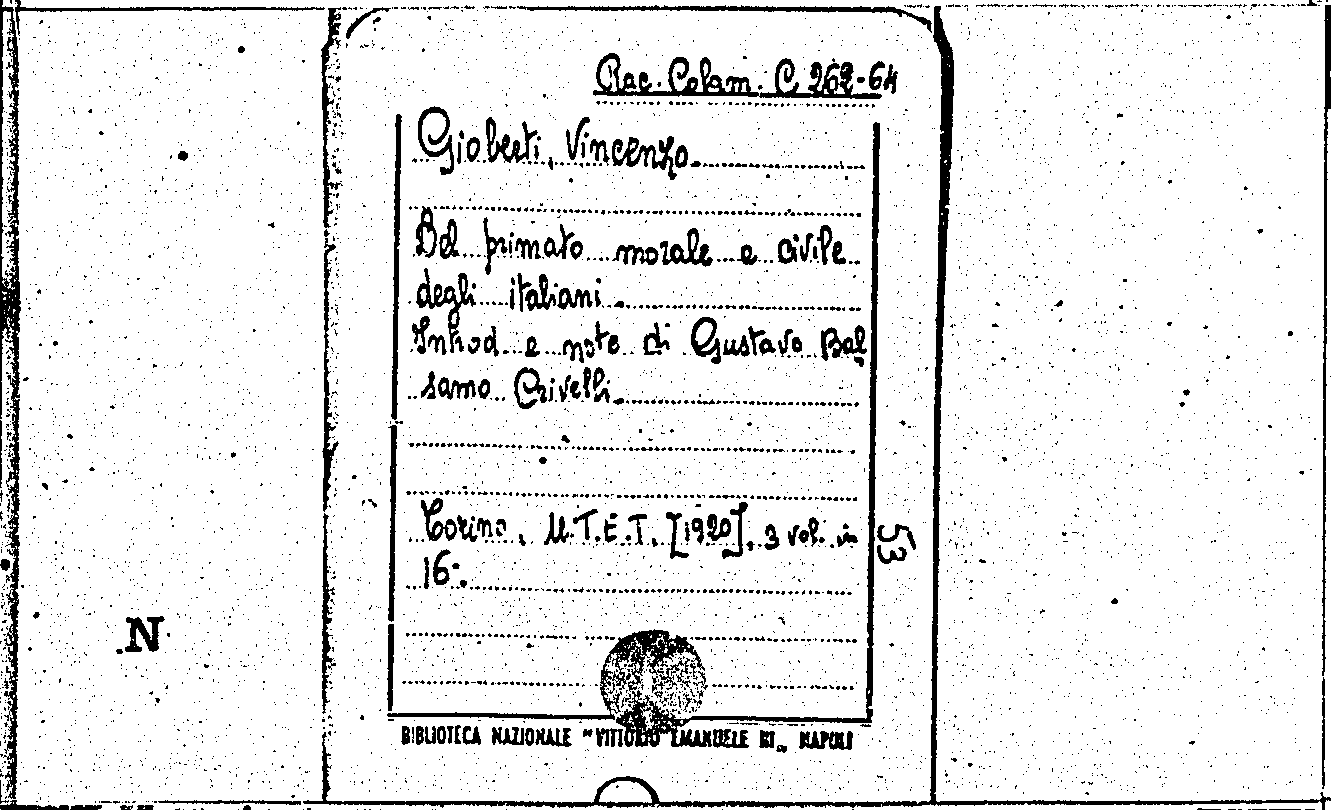 Rac. Colam. C 262-64
Gioberti, Vincenzo.
Del primato morale e civile
degli italiani.
Introd. e note di Gustavo Bal
samo Crivelli.
Torino, U.T.E.T. [1920], 3 vol. in
16°.
53
N
BIBLIOTECA NAZIONALE "VITTORIO EMANUELE III„ NAPOLI